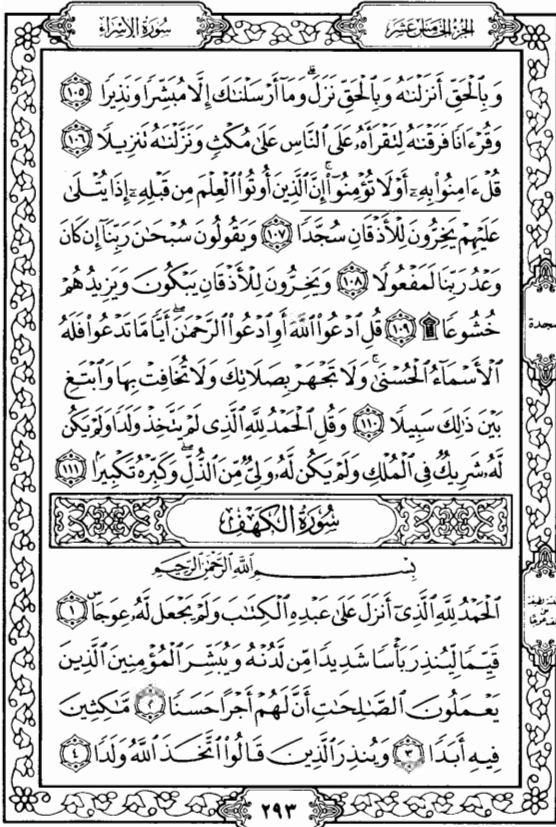 سُورَةُ الإِسْرَاءِ
الجُزْءُ الخَامِسَ عَشَرَ
وَبِٱلْحَقِّ أَنزَلْنَٰهُ وَبِٱلْحَقِّ نَزَلَ ۗ وَمَآ أَرْسَلْنَٰكَ إِلَّا مُبَشِّرًا وَنَذِيرًا ١٠٥
وَقُرْءَانًا فَرَقْنَٰهُ لِتَقْرَأَهُۥ عَلَى ٱلنَّاسِ عَلَىٰ مُكْثٍ وَنَزَّلْنَٰهُ تَنزِيلًا ١٠٦
قُلْ ءَامِنُوا۟ بِهِۦٓ أَوْ لَا تُؤْمِنُوٓا۟ ۚ إِنَّ ٱلَّذِينَ أُوتُوا۟ ٱلْعِلْمَ مِن قَبْلِهِۦٓ إِذَا يُتْلَىٰ
عَلَيْهِمْ يَخِرُّونَ لِلْأَذْقَانِ سُجَّدًا ١٠٧ وَيَقُولُونَ سُبْحَٰنَ رَبِّنَآ إِن كَانَ
وَعْدُ رَبِّنَا لَمَفْعُولًا ١٠٨ وَيَخِرُّونَ لِلْأَذْقَانِ يَبْكُونَ وَيَزِيدُهُمْ
خُشُوعًا ۩ ١٠٩ قُلِ ٱدْعُوا۟ ٱللَّهَ أَوِ ٱدْعُوا۟ ٱلرَّحْمَٰنَ ۖ أَيًّا مَّا تَدْعُوا۟ فَلَهُ
ٱلْأَسْمَآءُ ٱلْحُسْنَىٰ ۚ وَلَا تَجْهَرْ بِصَلَاتِكَ وَلَا تُخَافِتْ بِهَا وَٱبْتَغِ
بَيْنَ ذَٰلِكَ سَبِيلًا ١١٠ وَقُلِ ٱلْحَمْدُ لِلَّهِ ٱلَّذِى لَمْ يَتَّخِذْ وَلَدًا وَلَمْ يَكُن
لَّهُۥ شَرِيكٌ فِى ٱلْمُلْكِ وَلَمْ يَكُن لَّهُۥ وَلِىٌّ مِّنَ ٱلذُّلِّ ۖ وَكَبِّرْهُ تَكْبِيرًۢا ١١١
سُورَةُ الكَهْفِ
بِسْمِ ٱللَّهِ ٱلرَّحْمَٰنِ ٱلرَّحِيمِ
ٱلْحَمْدُ لِلَّهِ ٱلَّذِىٓ أَنزَلَ عَلَىٰ عَبْدِهِ ٱلْكِتَٰبَ وَلَمْ يَجْعَل لَّهُۥ عِوَجَا ۜ ١
قَيِّمًا لِّيُنذِرَ بَأْسًا شَدِيدًا مِّن لَّدُنْهُ وَيُبَشِّرَ ٱلْمُؤْمِنِينَ ٱلَّذِينَ
يَعْمَلُونَ ٱلصَّٰلِحَٰتِ أَنَّ لَهُمْ أَجْرًا حَسَنًا ٢ مَّٰكِثِينَ
فِيهِ أَبَدًا ٣ وَيُنذِرَ ٱلَّذِينَ قَالُوا۟ ٱتَّخَذَ ٱللَّهُ وَلَدًا ٤
٢٩٣